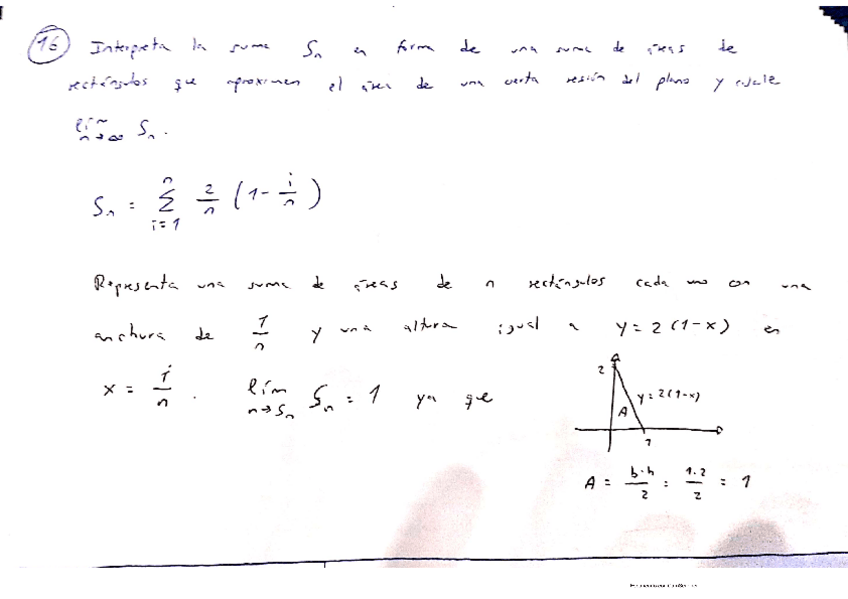 16 Interpreta la suma Sn en forma de una suma de áreas de
rectángulos que aproximen el área de una cierta región del plano y calcule
lím n→∞ Sn.
Sn = Σ i=1 n 2/n (1 - i/n)
Representa una suma de áreas de n rectángulos cada uno con una
anchura de 1/n y una altura igual a y = 2(1-x) en
x = i/n. lím n→Sn Sn = 1 ya que
2
y = 2(1-x)
A
1
A = b·h/2 = 1·2/2 = 1